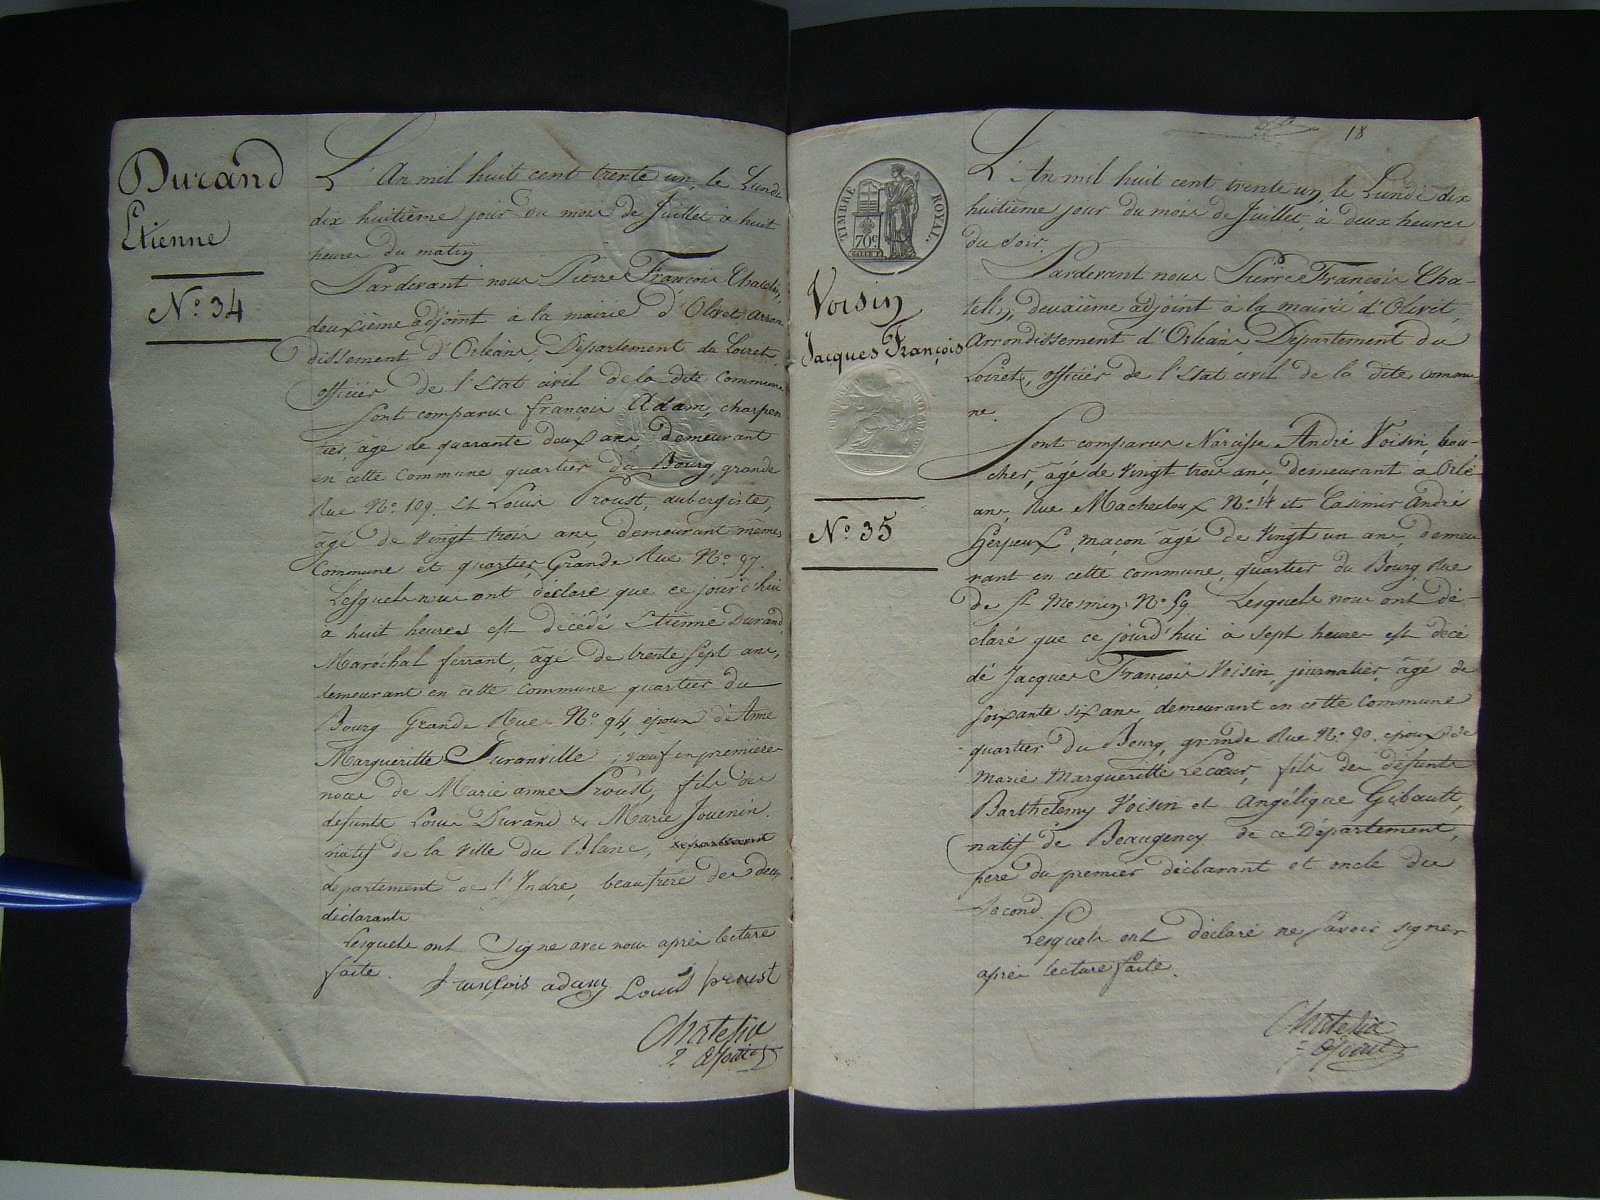 Durand
Etienne
N.o 34
L'An mil huit cent trente un, le Lundi
dix huitième jour du mois de Juillet à huit
heures du matin
Pardevant nous Pierre François Chatelin,
deuxième adjoint à la mairie d'Olivet, arron
dissement d'Orléans, Département du Loiret,
officier de l'Etat civil de la dite Commune
Sont comparus françois Adam, charpen
tier, âgé de quarante deux ans demeurant
en cette Commune quartier du Bourg, grande
Rue N.o 109. Et Louis Proust, aubergiste,
âgé de vingt trois ans, demeurant même
Commune et quartier, Grande Rue N.o 97.
Lesquels nous ont déclaré que ce jourd'hui
à huit heures est décédé Etienne Durand,
Maréchal ferrant, âgé de trente sept ans,
demeurant en cette Commune quartier du
Bourg Grande Rue N.o 94, époux d'Anne
Margueritte Juranville, veuf en première
noces de Marie anne Proust, fils de
defunts Louis Durand & Marie Jouenin.
natif de la Ville du Blanc,
département de l'Indre, beaufrère des deux
déclarants
Lesquels ont Signé avec nous après lecture
faite.
françois adam Louis proust
Chatelin
2.e adjoint
18
TIMBRE ROYAL.
70c
L'An mil huit cent trente un, le Lundi dix
huitième jour du mois de Juillet, à deux heures
du soir.
Voisin
Jacques François
N.o 35
Pardevant nous Pierre François Cha-
telin, deuxième adjoint à la mairie d'Olivet,
Arrondissement d'Orléans, Département du
Loiret, officier de l'Etat civil de la dite commu
ne.
Sont comparus Narcisse André Voisin, bou-
cher, âgé de vingt trois ans, demeurant à Orlé-
ans, Rue Macheclou x N.o 14 et Casimir André
Herpeux, maçon âgé de Vingt un ans, demeu
rant en cette commune, quartier du Bourg, Rue
de St Mesmin N.o 59. Lesquels nous ont dé-
claré que ce jourd'hui à sept heures est décé
dé Jacques François Voisin, journalier, âgé de
soixante six ans, demeurant en cette commune
quartier du Bourg, grande Rue N.o 90. époux de
Marie Margueritte Lecoeur, fils de defunts
Barthelemy Voisin et Angélique Gibault,
natif de Beaugency de ce Département,
père du premier déclarant et oncle du
second.
Lesquels ont déclaré ne savoir signer
après lecture faite.
Chatelin
2.e adjoint